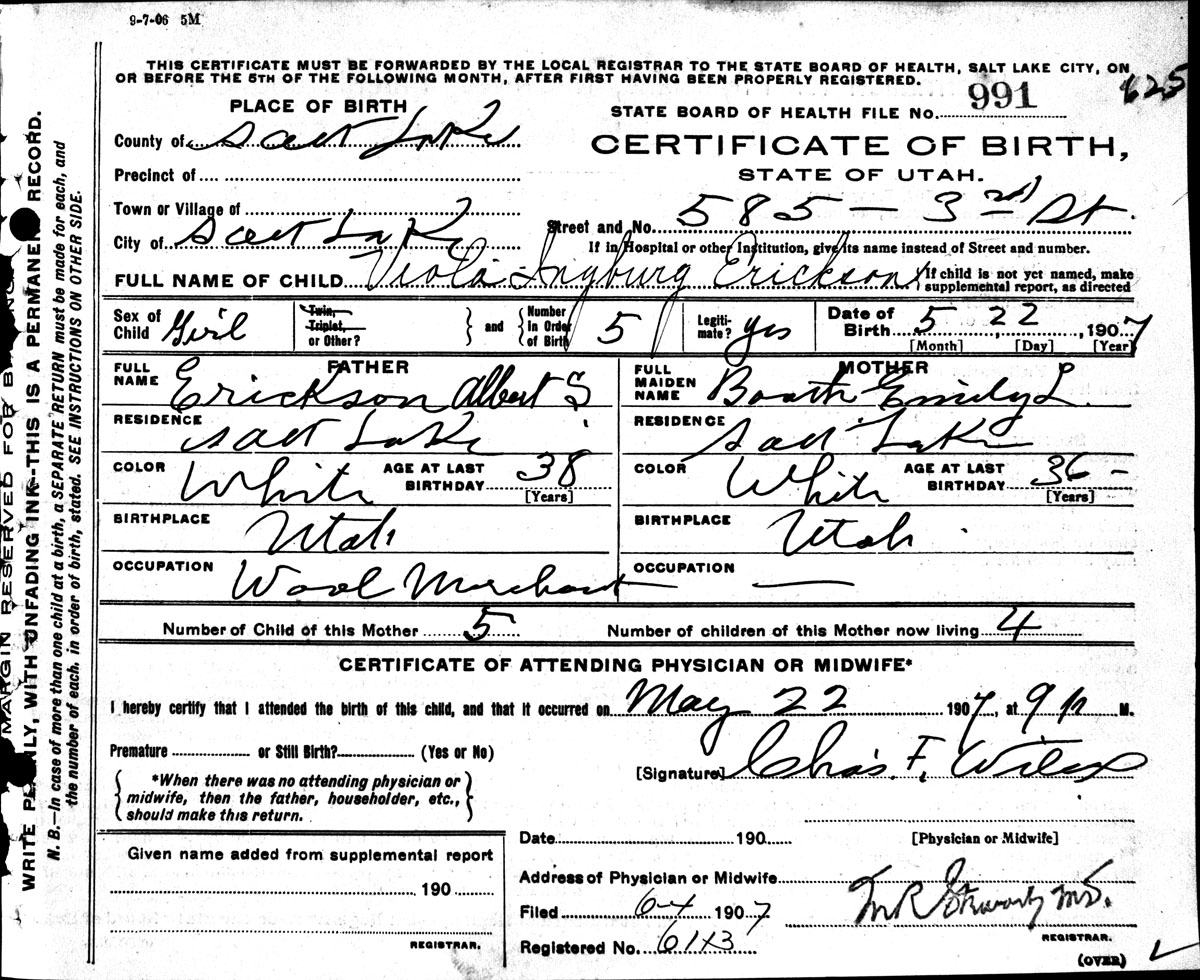 9-7-06 5M
THIS CERTIFICATE MUST BE FORWARDED BY THE LOCAL REGISTRAR TO THE STATE BOARD OF HEALTH, SALT LAKE CITY, ON
OR BEFORE THE 5TH OF THE FOLLOWING MONTH, AFTER FIRST HAVING BEEN PROPERLY REGISTERED.
625
PLACE OF BIRTH
STATE BOARD OF HEALTH FILE NO. 991
County of Salt Lake
CERTIFICATE OF BIRTH,
STATE OF UTAH.
Precinct of
Town or Village of
Street and No. 585 — 3rd St.
City of Salt Lake
If in Hospital or other Institution, give its name instead of Street and number.
FULL NAME OF CHILD Viola Ingburg Erickson
If child is not yet named, make
supplemental report, as directed
Sex of Child Girl
Twin, Triplet, or Other?
and
Number in Order of Birth 5
Legitimate? yes
Date of Birth 5 22, 1907
[Month] [Day] [Year]
FATHER
MOTHER
FULL NAME Erickson Albert S
FULL MAIDEN NAME Booth Emily L.
RESIDENCE Salt Lake
RESIDENCE Salt Lake
COLOR White AGE AT LAST BIRTHDAY 38 [Years]
COLOR White AGE AT LAST BIRTHDAY 36 – [Years]
BIRTHPLACE Utah
BIRTHPLACE Utah
OCCUPATION Wool Merchant
OCCUPATION —
Number of Child of this Mother 5
Number of children of this Mother now living 4
CERTIFICATE OF ATTENDING PHYSICIAN OR MIDWIFE*
I hereby certify that I attended the birth of this child, and that it occurred on May 22 1907, at 9 M.
Premature or Still Birth? (Yes or No)
[Signature] Chas. F. Wilcox
*When there was no attending physician or
midwife, then the father, householder, etc.,
should make this return.
Date 190
[Physician or Midwife]
Given name added from supplemental report
190
REGISTRAR.
Address of Physician or Midwife
Filed 6-4 1907
M.D.
Registered No.
REGISTRAR.
(OVER)
MARGIN RESERVED FOR
WRITE PLAINLY, WITH UNFADING INK—THIS IS A PERMANENT RECORD.
N. B.—In case of more than one child at a birth, a SEPARATE RETURN must be made for each, and
the number of each, in order of birth, stated. SEE INSTRUCTIONS ON OTHER SIDE.